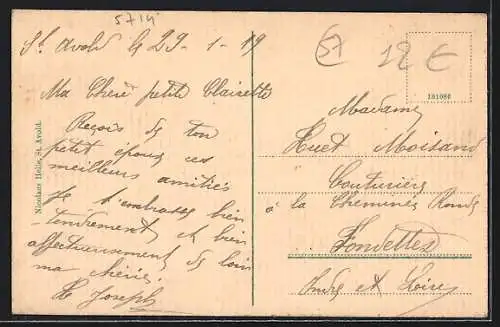 5714
St Avold le 29-1-19
57
12 €
Ma Cherè petite Clairette
Reçois de ton
petit époux ses
meilleurs amitiés
Je t'embrasse bien
tendrement et bien
affectueusement de loin
ma chérie.
Joseph
Nicolaus Helle, St. Avold.
181080
Madame
Huet Moisand
Couturière
à la Cheminée Ronde
Fondettes
Indre et Loire